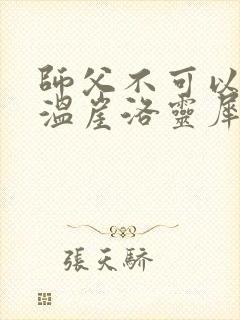 師父不可以
溫崖洛靈犀
張天驕